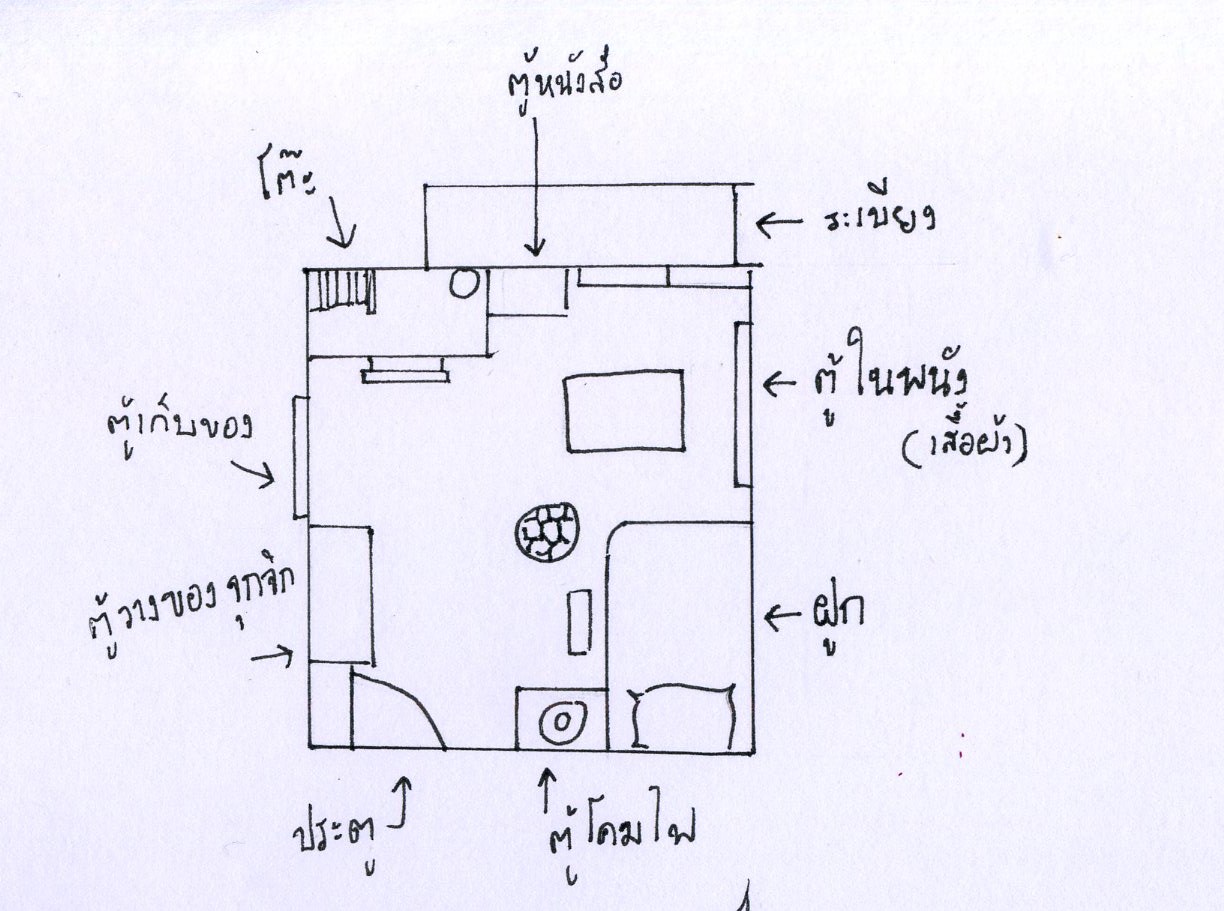 ตู้หนังสือ
โต๊ะ
ระเบียง
ตู้ในพนัง
(เสื้อผ้า)
ตู้เก็บของ
ตู้วางของจุกจิก
ฝูก
ประตู
ตู้โคมไฟ